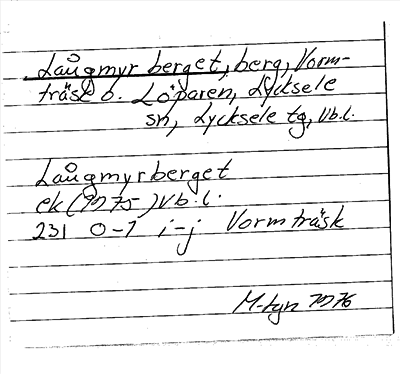 Långmyrberget, berg, Vorm-
träsk b. Löparen, Lycksele
sn, Lycksele tg, Vb.l.
Långmyrberget
ek (1975) Vb.l.
231 0-1 i-j Vormträsk
M-tyn 1976